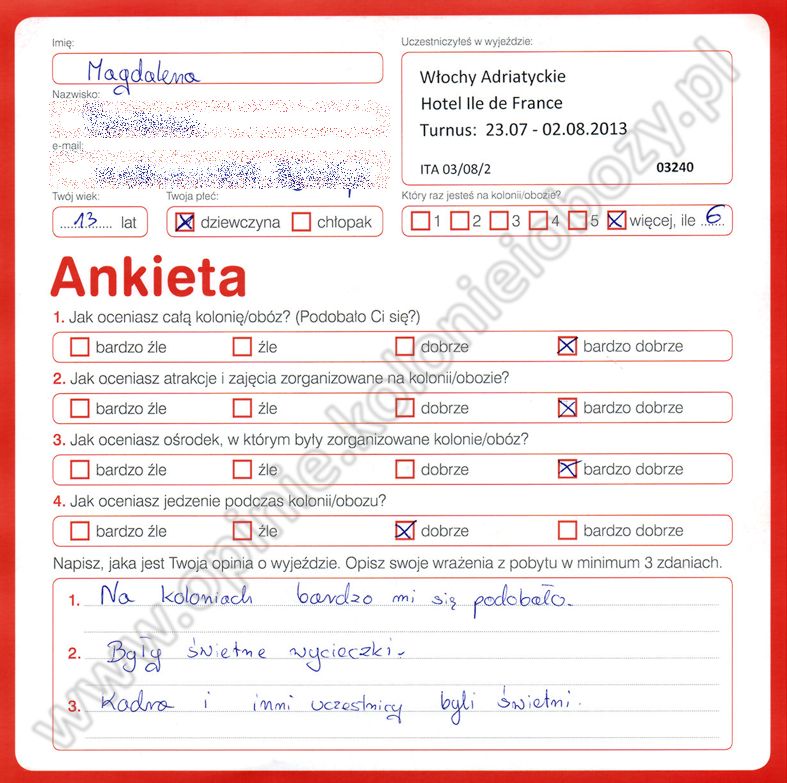 Imię:
Uczestniczyłeś w wyjeździe:
Magdalena
Włochy Adriatyckie
Hotel Ile de France
Turnus: 23.07 - 02.08.2013
ITA 03/08/2 03240
Nazwisko:
e-mail:
Twój wiek: Twoja płeć: Który raz jesteś na kolonii/obozie?
13 lat dziewczyna chłopak 1 2 3 4 5 więcej, ile 6
Ankieta
1. Jak oceniasz całą kolonię/obóz? (Podobało Ci się?)
bardzo źle źle dobrze bardzo dobrze
2. Jak oceniasz atrakcje i zajęcia zorganizowane na kolonii/obozie?
bardzo źle źle dobrze bardzo dobrze
3. Jak oceniasz ośrodek, w którym były zorganizowane kolonie/obóz?
bardzo źle źle dobrze bardzo dobrze
4. Jak oceniasz jedzenie podczas kolonii/obozu?
bardzo źle źle dobrze bardzo dobrze
Napisz, jaka jest Twoja opinia o wyjeździe. Opisz swoje wrażenia z pobytu w minimum 3 zdaniach.
1. Na koloniach bardzo mi się podobało.
2. Były świetne wycieczki.
3. Kadra i inni uczestnicy byli świetni.
www.opinie.kolonieiobozy.pl